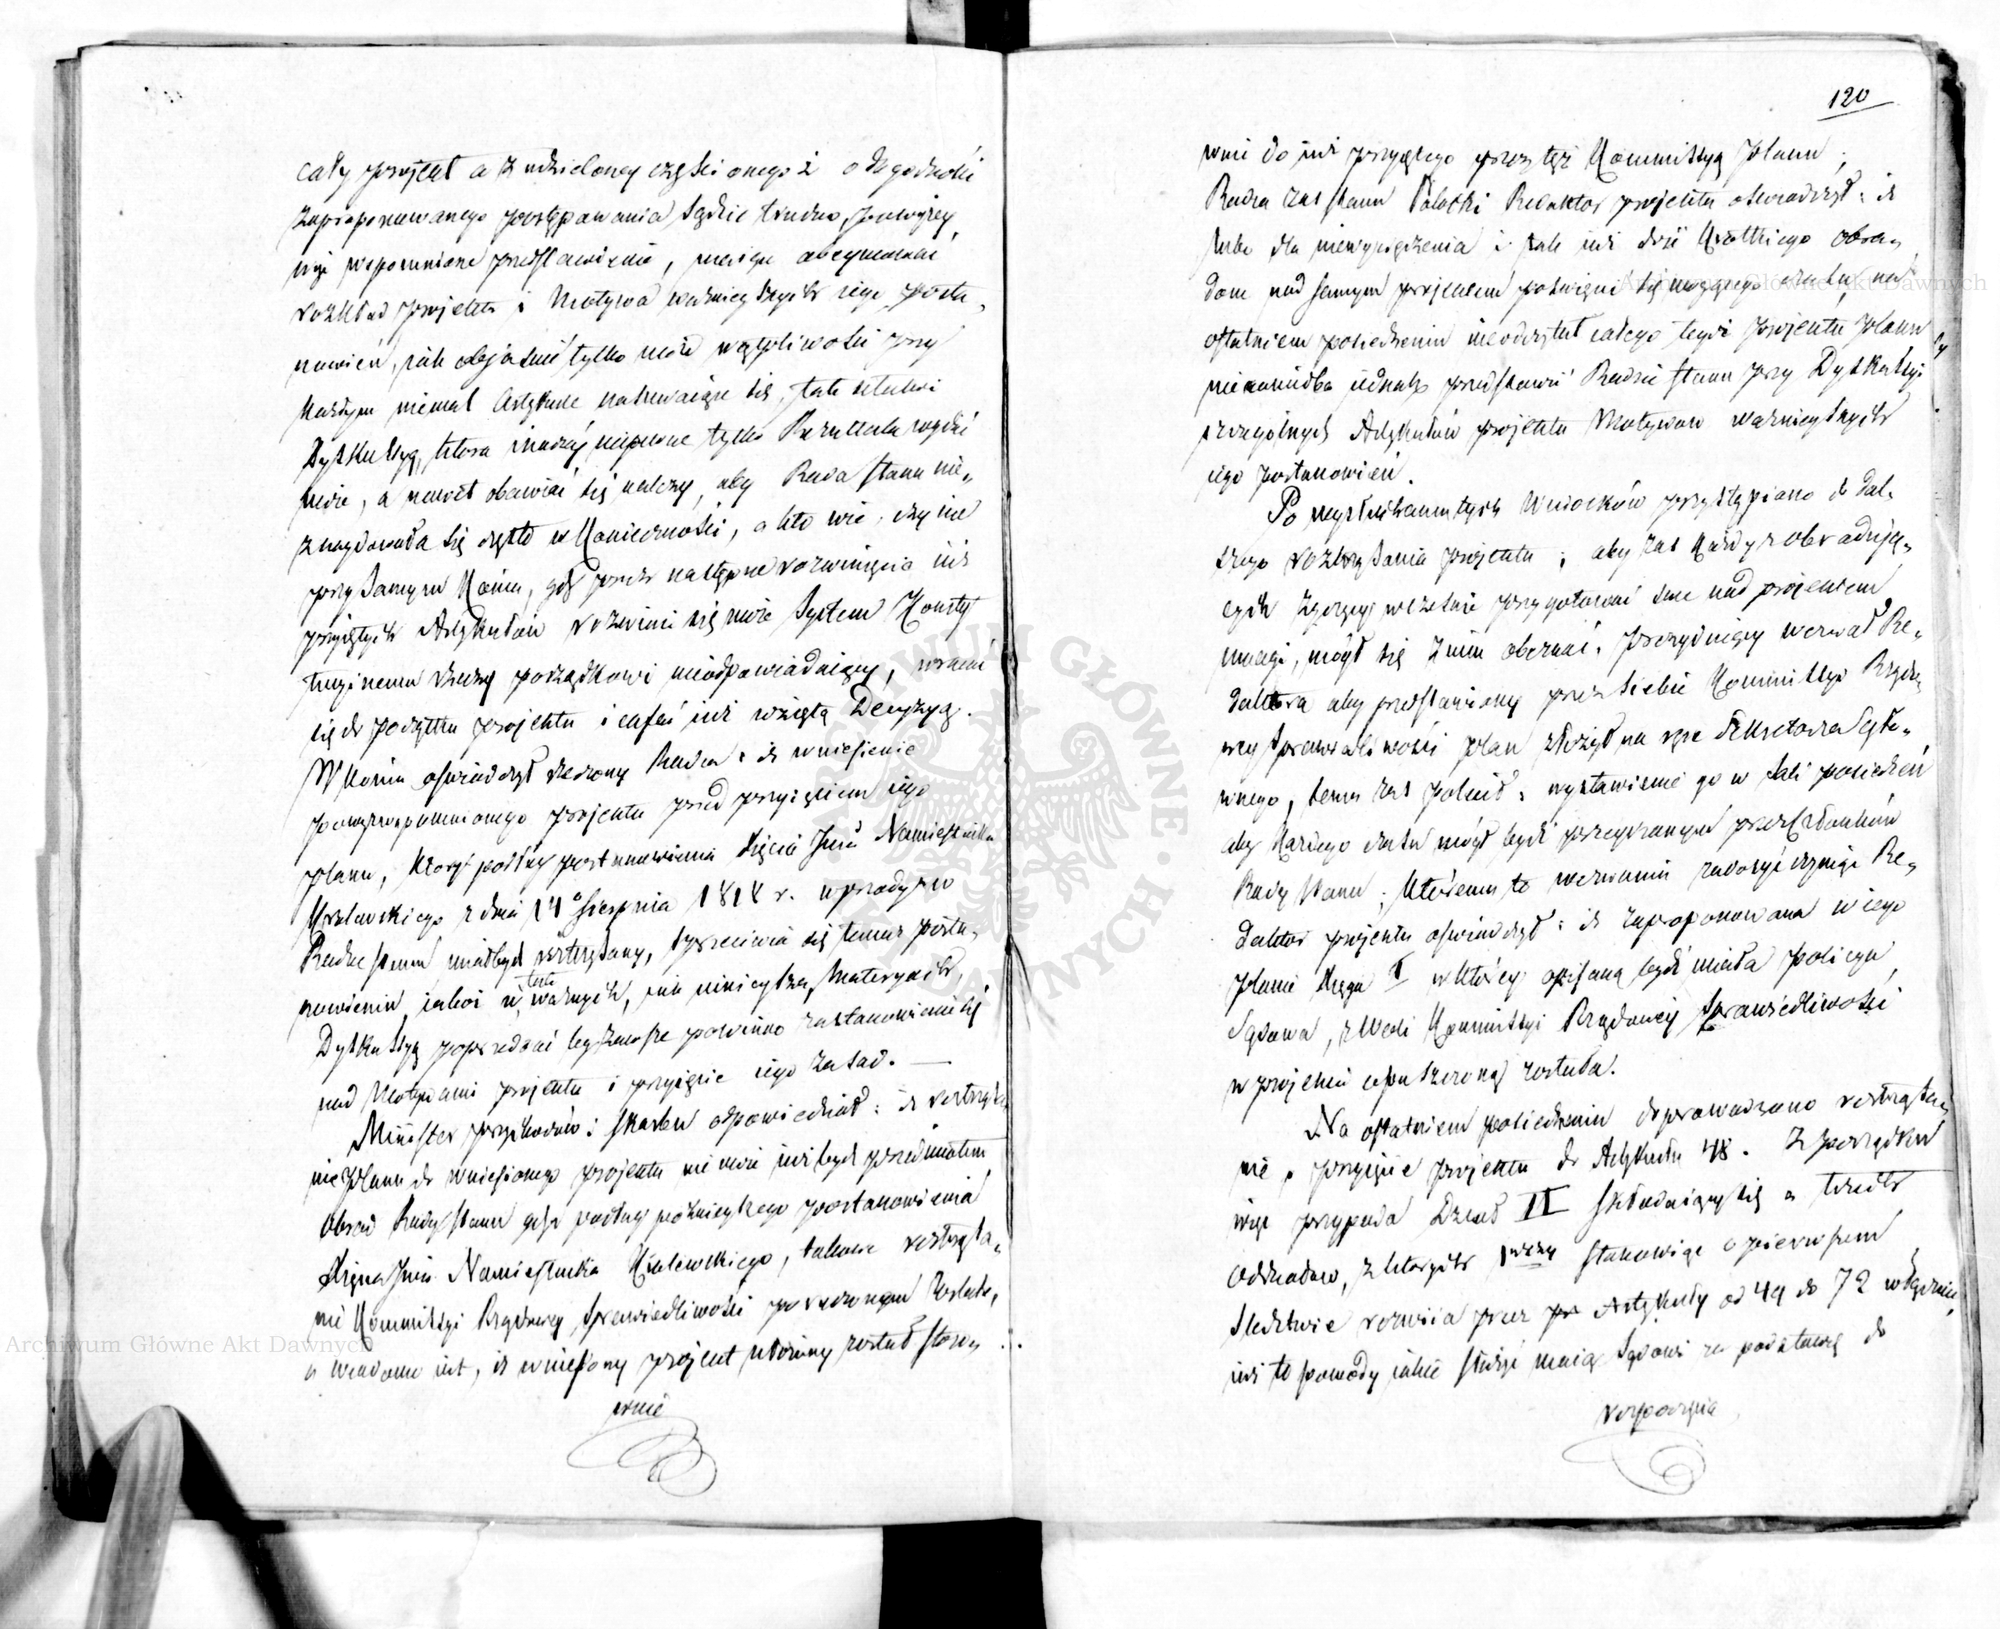 cały projekt a z udzieloney części onegoż o dogodności
zaproponowanego postępowania sądzić trudno, powyżey
więc wspomnione przedstawienie, maiące obeymować
rozkład projektu i Motywa ważnieyszych iego posta-
nowień, iak objaśnić tylko może wątpliwości przy
każdym niemal Artykule nasuwaiące się, tak ułatwi
Dyskussyą, która inaczéy niepewne tylko Rezultata wydać
może, a nawet obawiać się należy, aby Rada Stanu nie
znaydowała się często w konieczności, a kto wie, czy nie
przy samym końcu, gdy przez następne rozwinięcia iuż
przyiętych Artykułów rozwinie się może System Konsty-
tucyinemu rzeczy porządkowi nieodpowiadaiący, wrócić
się do początku projektu i cofać iuż wziętą Decyzyą.
W końcu oświadczył rzeczony Radca: iż wniesienie
powyżwspomnionego projektu przed przyięciem iego
planu, który podług postanowienia Xięcia Jmci Namiestnika
Królewskiego z dnia 14o Sierpnia 1818 r. wprzódy w
Radzie Stanu miał być roztrząsany, sprzeciwia się temuż posta-
nowieniu, iakoż w tak ważnych, iak ninieysza, Materyach,
Dyskussyą poprzedzać być zawsze powinno zastanowienie się
nad Motywami projektu i przyięcie iego zasad. —
Minister Przychodów i Skarbu odpowiedział: iż roztrząsa-
nie Planu do wniesionego projektu nie może iuż być przedmiotem
obrad Rady Stanu gdyż podług późnieyszego postanowienia
Xięcia Jmci Namiestnika Królewskiego, takowe roztrząsa-
nie Kommissyi Rządowey Sprawiedliwości poruczonym zostało,
a wiadomo iest, iż wniesiony projekt ułożony został stoso-
wnie
120
wnie do iuż przyiętego przez tęż Kommissyą Planu;
Radca zaś Stanu Redaktor projektu oświadczył: iż
lubo dla niewyciągnienia i tak iuż dość krótkiego obra-
dom nad samym projektem poświęcić się mogącego czasu, na
ostatniem posiedzeniu nieodczytał całego tegoż projektu Planu
niezaniedba iednak przedstawić Radzie Stanu przy Dyskussyi
szczególnych Artykułów projektu Motywów ważnieyszych
iego postanowień.
Po wysłuchaniu tych Wniosków przystąpiono do dal-
szego roztrząsania projektu; aby zaś każdy z obradują-
cych życzący wcześnie przygotować swe nad projektem
uwagi, mógł się z nim obeznać, Prezyduiący wezwał Re-
daktora aby przedstawiony przez siebie Kommissyi Rządo-
wey Sprawiedliwości plan złożył na ręce Sekretarza Głó-
wnego, temu zaś polecił: wystawienie go w Sali posiedzeń
aby każdego czasu mógł być przeyrzanym przez Członków
Rady Stanu; któremu to wezwaniu zadosyć czyniąc Re-
daktor projektu oświadczył: iż zaproponowana w iego
planie Xięga I w którey opisaną być miała Policya
Sądowa, z Woli Kommissyi Rządowéy Sprawiedliwości
w projekcie opuszczoną została.
Na ostatniem posiedzeniu doprowadzono roztrząsa-
nie i przyięcie projektu do Artykułu 48. Z porządku
więc przypada Dział II składaiący się z trzech
Oddziałów, z których pierwszy stanowiąc o pierwszem
śledztwie rozwiia przez Artykuły od 49 do 72 włącznie,
iuż to powody iakie służyć maią Sądowi za podstawę do
rozpoczęcia
Archiwum Główne Akt Dawnych
Archiwum Główne Akt Dawnych
ARCHIWUM GŁÓWNE AKT DAWNYCH